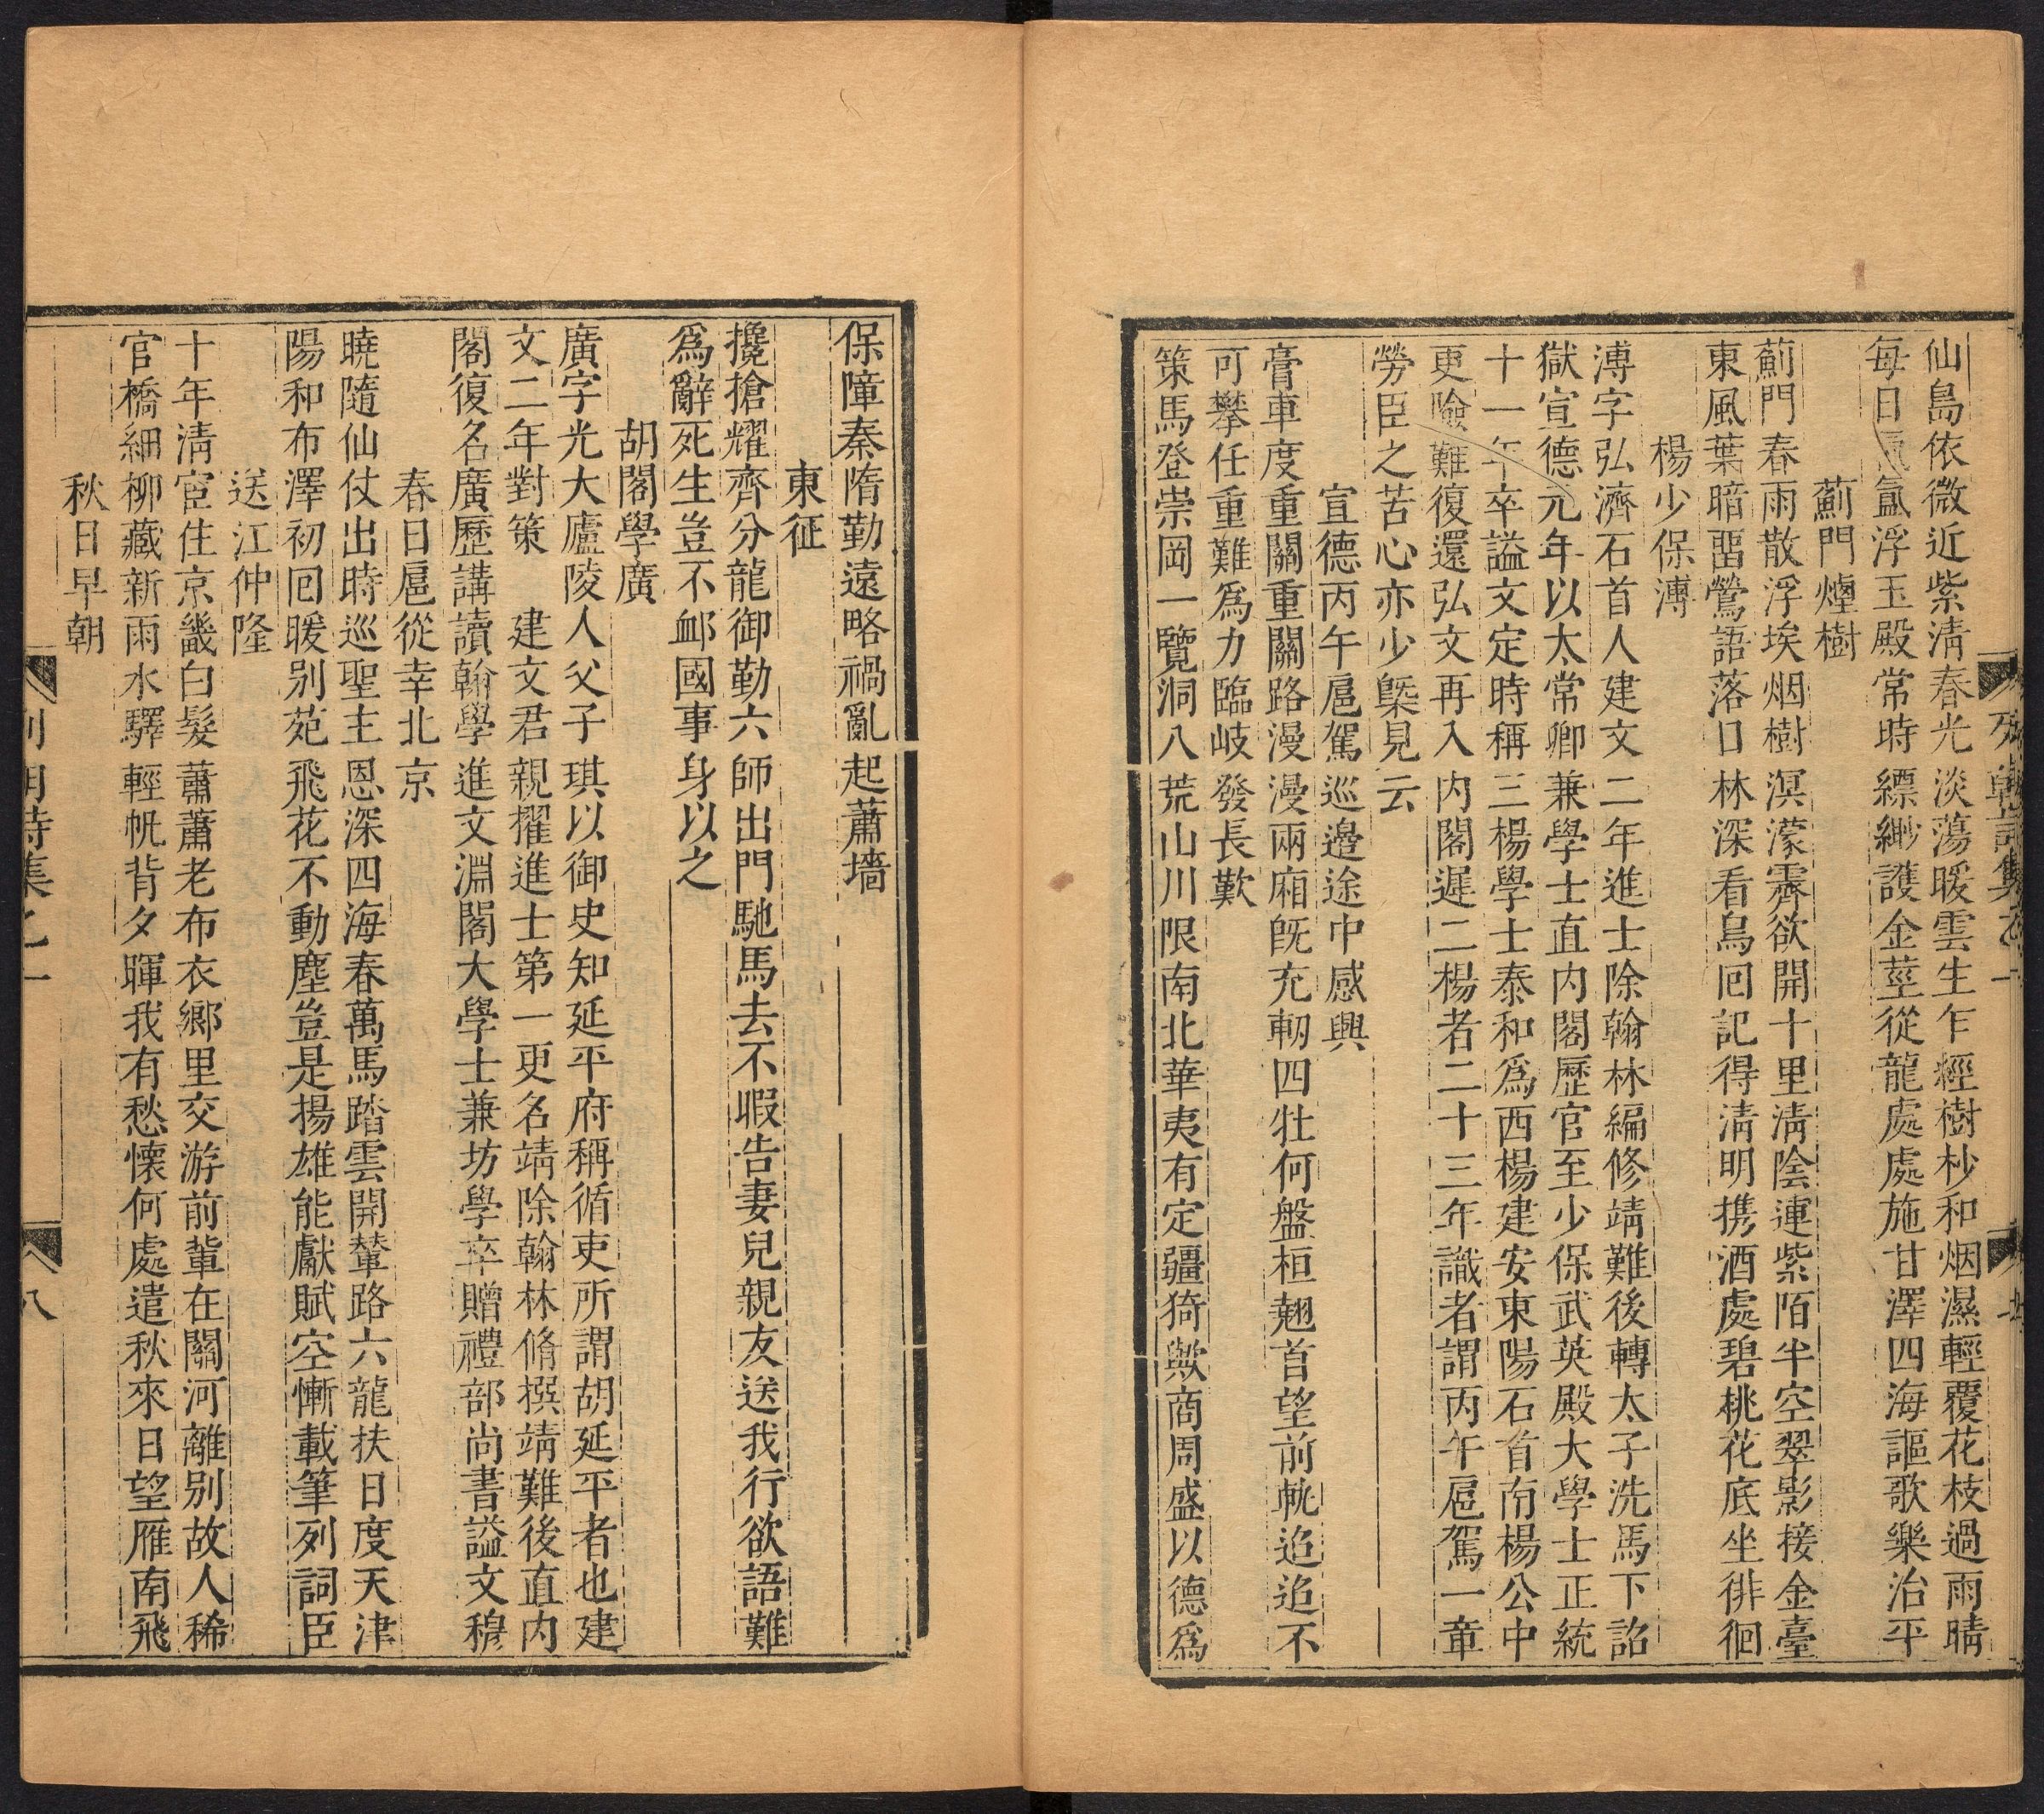 仙島依微近紫淸春光淡蕩暖雲生乍經樹杪和烟濕輕覆花枝過雨晴
每日氤氳浮玉殿常時縹緲護金莖從龍處處施甘澤四海謳歌樂治平
薊門煙樹
薊門春雨散浮埃烟樹溟濛霽欲開十里淸陰連紫陌半空翠影接金臺
東風葉暗畱鶯語落日林深看鳥回記得淸明携酒處碧桃花底坐徘徊
楊少保溥
溥字弘濟石首人建文二年進士除翰林編修靖難後轉太子洗馬下詔
獄宣德元年以太常卿兼學士直内閣歷官至少保武英殿大學士正統
十一年卒謚文定時稱三楊學士泰和爲西楊建安東陽石首南楊公中
更險難復還弘文再入内閣遲二楊者二十三年識者謂丙午扈駕一章
勞臣之苦心亦少槩見云
宣德丙午扈駕巡邊途中感興
膏車度重關重關路漫漫兩廂旣充軔四牡何盤桓翹首望前軌追追不
可攀任重難爲力臨岐發長歎
策馬登崇岡一覽洞八荒山川限南北華夷有定疆猗歟商周盛以德爲
保障秦隋勤遠略禍亂起蕭墻
東征
攙搶耀齊分龍御勤六師出門馳馬去不暇告妻兒親友送我行欲語難
爲辭死生豈不邮國事身以之
胡閣學廣
廣字光大廬陵人父子琪以御史知延平府稱循吏所謂胡延平者也建
文二年對策 建文君親擢進士第一更名靖除翰林脩撰靖難後直内
閣復名廣歷講讀翰學進文淵閣大學士兼坊學卒贈禮部尚書謚文穆
春日扈從幸北京
曉隨仙仗出時巡聖主恩深四海春萬馬踏雲開輦路六龍扶日度天津
陽和布澤初回暖别苑飛花不動塵豈是揚雄能獻賦空慚載筆列詞臣
送江仲隆
十年淸宦住京畿白髮蕭蕭老布衣鄉里交游前輩在關河離别故人稀
官橋細柳藏新雨水驛輕帆背夕暉我有愁懷何處遣秋來日望雁南飛
秋日早朝
列朝詩集乙一
八